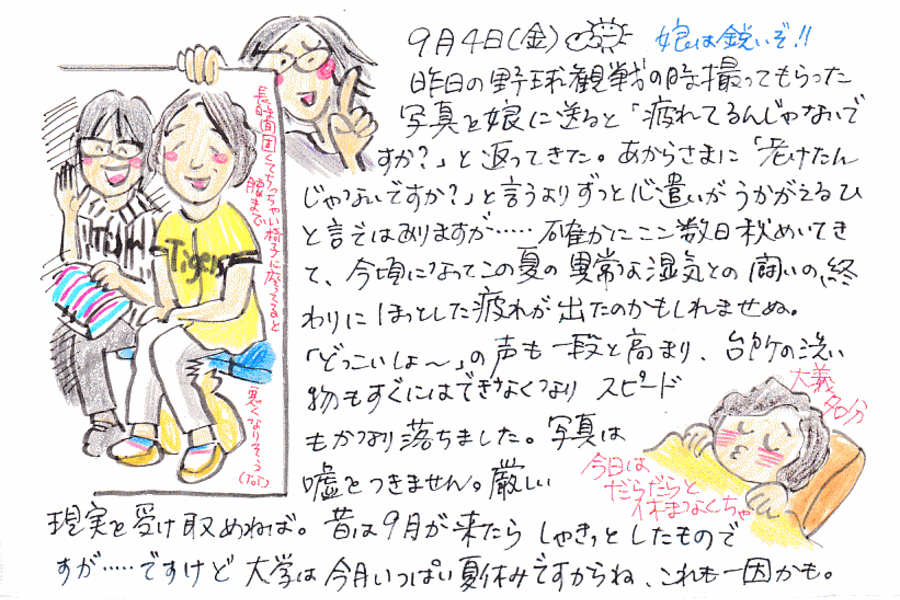 9月4日(金) 娘は鋭いぞ!!
昨日の野球観戦の時撮ってもらった
写真を娘に送ると「疲れてるんじゃないで
すか?」と返ってきた。あからさまに「老けたん
じゃないですか?」と言うよりずっと心遣いがうかがえるひ
と言ではありますが……確かにここ数日秋めいてき
て、今頃になってこの夏の異常な湿気との闘いの終
わりにほっとした疲れが出たのかもしれませぬ。
「どっこいしょ〜」の声も一段と高まり、台所の洗い
物もすぐにはできなくなり スピード
もかなり落ちました。写真は
嘘をつきません。厳しい
現実を受け取めねば。昔は9月が来たらしゃきっとしたもので
すが……ですけど大学は今月いっぱい夏休みですからね、これも一因かも。
長時間固くてちっちゃい椅子に座ってると
腰まで
悪くなりそう
Tigers
大義
名分
今日は
だらだらと
休まなくちゃ